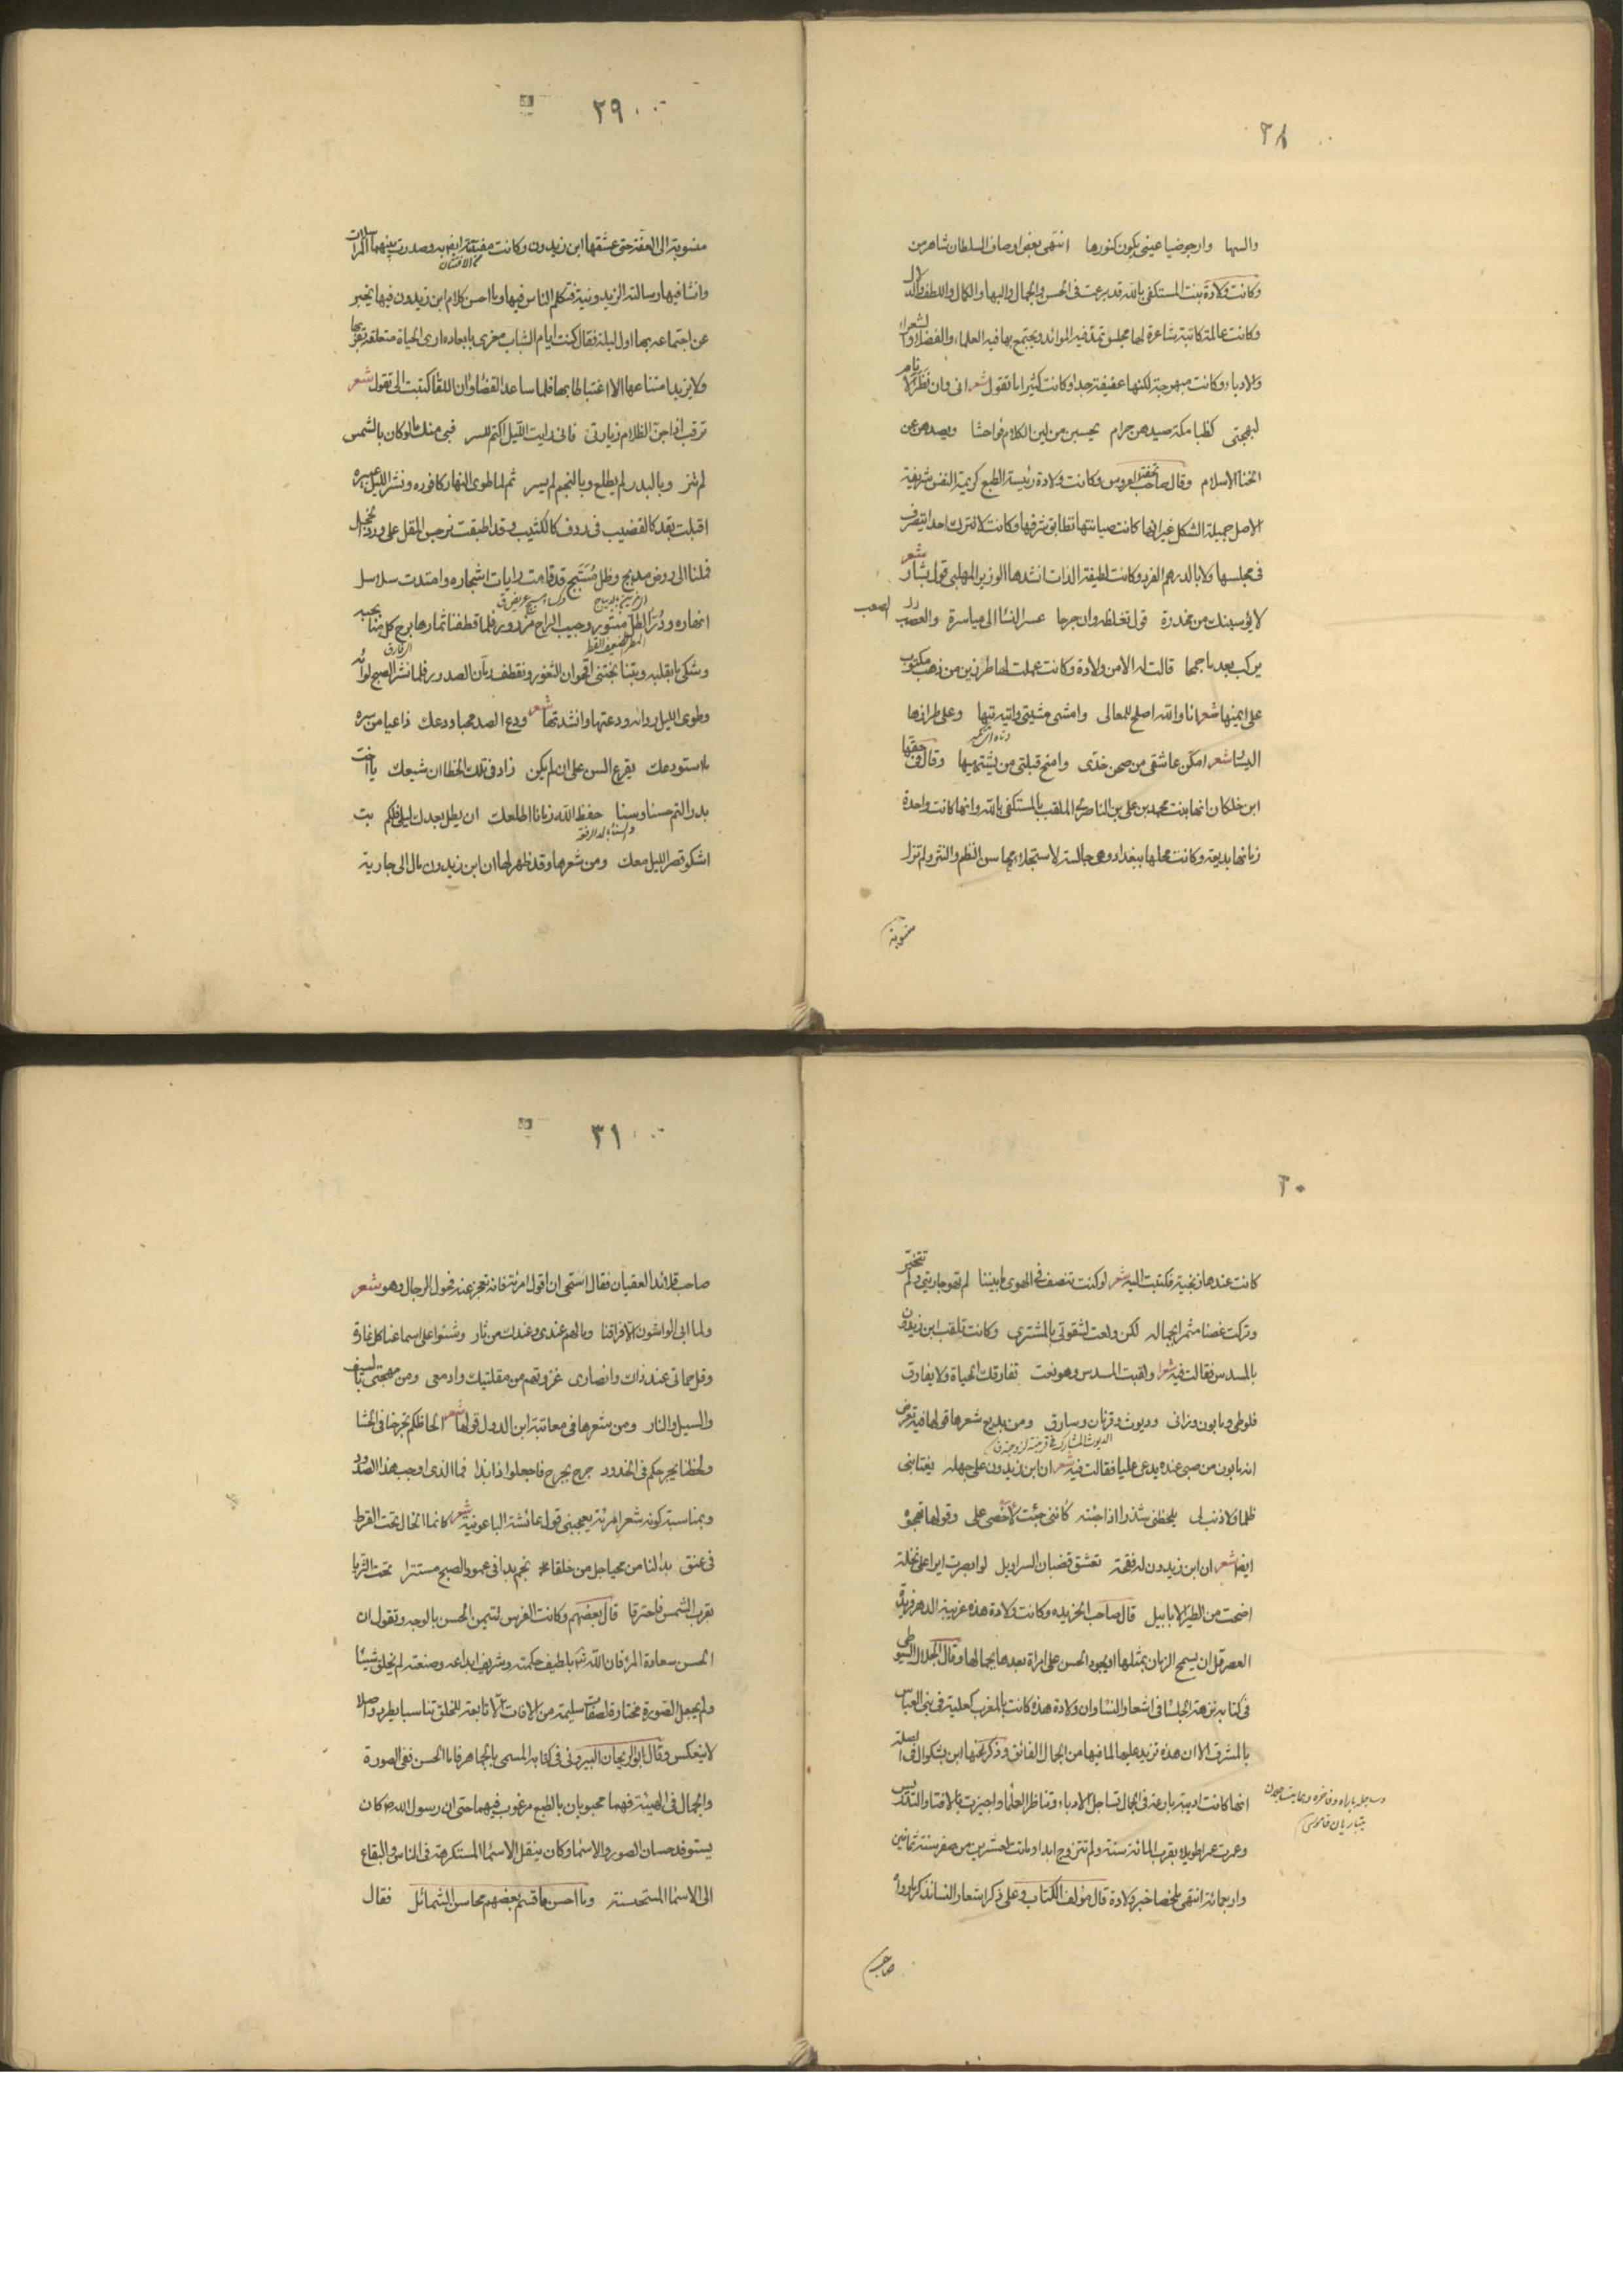 ٢٨
والبها وارجو ضيا عيني يكون كنورها انتهى بعض اوصاف السلطان شاهرمن
وكانت ولادة بنت المستكفى بالله قد برعت فى الحسن والجمال والبها والكمال واللطف والدلال
وكانت عالمة كاتبة شاعرة لها مجلس تمد فيه الموائد ويجتمع بها فيه العلماء والفضلا والشعراء
والادباء وكانت مبهرجة لكنها عفيفة جدا وكانت كثيرا ما تقول شعر انى وان نظر الانام
لبهجتى كظباء مكة صيدهن حرام يحسبن من لين الكلام فواحشا ويصدهن عن
الخنا الاسلام وقال صاحب تحفة العروس وكانت ولادة رئيسة الطبع كريمة النفس شريفة
الاصل جميلة الشكل غير انها كانت صيانتها تطابق شرفها وكانت لا تترك احدا يتصرف
فى مجلسها ولا بالدرهم الفرد وكانت لطيفة الذات انشدها الوزير المهلبى قول بشار شعر
لا يؤسينك من مخدرة قول تغلظه وان جرحا عسر النسا الى مياسرة والصعب
يركب بعد ما جمحا قالت له الامن ولادة وكانت عملت لها طرزين من ذهب مكتوب
على ايمينها شعر انا والله اصلح للمعالى وامشى مشيتى واتيه تيها وعلى طرازها
اليسا شعر امكن عاشقى من صحن خدى وامنح قبلتى من يشتهيها وقال فى حقها
ابن خلكان انها بنت محمد بن على بن الناصر الملقب بالمستكفى بالله وانها كانت واحدة
زمانها بديعة وكانت محلها ببغداد وهى جالسة لاستجلاء محاسن النظم والنثر ولم تزل
منسوبة
٢٩
منسوبة الى العفة حتى عشقها ابن زيدون وكانت مفتتنة ايضا به وصدرت بينهما المراسلات
وانشا فيها رسالته الزيدونية فتكلم الناس فيها وما احسن كلام ابن زيدون فيها يخبر
عن اجتماعه بها اول ليلة فقال كنت ايام الشباب مغرى بابعاده ارى الحياة متعلقة بقربها
ولا يزيد امتناعها الا اغتباطا بها فلما ساعد القضا وان اللقا كتبت الى تقول شعر
ترقب اذا جن الظلام زيارتى فانى رايت الليل اكتم للسر فبى منك ما لو كان بالشمس
لم تنر وبالبدر لم يطلع وبالنجم لم يسر ثم لما طوى النهار كافوره ونشر الليل عبيره
اقبلت بقد كالقضيب فى ردف كالكثيب وقد اطبقت نرجس المقل على ورد الخجل
فملنا الى روض مدبج وظل مسبج قد قامت رايات اشجاره وامتدت سلاسل
انهاره ودر الطل منثور وجيب الراح مزرور فلما قطفنا ثمارها برح كل منا بحبه
وشكى ما بقلبه وبتنا نجتنى اقحوان الثغور ونقطف رمان الصدور فلما نشر الصبح لوائه
وطوى الليل رداءه ودعتها وانشدتها شعر ودع الصد محبا ودعك ذاعيا من سره
ما استودعك يقرع السن على ان لم يكن زاد فى تلك الخطا ان شيعك يا اخت
بدر التم حسنا وسنا حفظ الله زمانا اطلعك ان يطل بعدك ليلى فلكم بت
اشكو قصر الليل معك ومن شعرها وقد ظهر لها ان ابن زيدون مال الى جارية
٣٠
كانت عندها زنجية فكتبت اليه شعر لو كنت تنصف فى الهوى ما بيننا لم تهو جاريتى ولم تتخير
وتركت غصنا مثمرا بجماله لكن ولعت لشقوتى بالمشترى وكانت تلقب ابن زيدون
بالمسدس فقالت فيه شعرا ولقبت المسدس وهو نعت تفارقك الحياة ولا يفارق
فلوطى ومابون وزانى وديوث وقرنان وسارق ومن بديع شعرها قولها فيه تعرض
انه مابون من صبى عنده يدعى عليا فقالت فيه شعر ان ابن زيدون على جهله يغتابنى
ظلما ولا ذنب لى يلحظنى شذرا اذا جئته كاننى جئت لاخصى على وقولها تهجوه
ايضا شعر ان ابن زيدون له فقحة تعشق قضبان السراويل لو ابصرت ايرا على نخلة
اضحت من الطير الابابيل قال صاحب الخريده وكانت ولادة هذه غريبة الدهر فريدة
العصر قل ان يسمح الزمان بمثلها او يجود الحسن على امراة بعدها بجمالها وقال الجلال السيوطى
فى كتابه نزهة الجلسا فى اشعار النسا وان ولادة هذه كانت بالمغرب كعلية فى بنى العباس
بالمشرق الا ان هذه تزيد عليها لما فيها من الجمال الفائق وذكر نحوها ابن بشكوال فى الصلة
انها كانت اديبة بارعة فى الجمال تساجل الادباء وتناظر العلما واجيزت بالافتا والتدريس
وعمرت عمرا طويلا بقرب المائة سنة ولم تتزوج ابدا وماتت لعشر بن من صفر سنة ثمانين
واربعمائة انتهى ملخصا خبر ولادة قال مؤلف الكتاب وعلى ذكر اشعار النسا نذكر
صاحب
٣١
صاحب قلائد العقيان فقال استحى ان اقول امرئة فانه تعجز عنه فحول الرجال وهو شعر
ولما ابى الواشون الا فراقنا وما لهم عندى وعندك من ثار وشنوا على اسماعنا كل غارة
وقل حماتى عند ذاك وانصارى غزوتهم من مقلتيك وادمعى ومن مهجتى بالسيف
والسيل والنار ومن شعرها فى معاتبة ابن الدول قولها شعر الحاظكم تجرحنا فى الحشا
ولحظنا يجرحكم فى الخدود جرح بجرح فاجعلوا ذا بذا فما الذى اوجب هذا الصدود
وبمناسبة كونه شعر امرئة يعجبنى قول عائشة الباعونية شعر كانما الخال تحت القرط
فى عنق بدا لنا من محيا جل من خلقا نجم بدا فى عمود الصبح مستترا تحت الثريا
بقرب الشمس فاحترقا قال بعضهم وكانت الفرس تتيمن الحسن بالوجه وتقول ان
الحسن سعادة المرء فان الله بلطيف حكمته وشريف ابداعه وصنعته لم يخلق شيئا
ولم يجعل الصورة مختارة لصفات سليمة من الافات الا تابعة للخلق تناسبا يطرد واصلا
لا ينعكس وقال ابو الريحان البيرونى فى كتابه المسمى بالجماهر فاما الحسن ففى الصورة
والجمال فى الهيئة فهما محبوبان بالطبع مرغوب فيهما حتى ان رسول الله ص كان
يستوفد حسان الصور والاسما وكان ينقل الاسما المستكرهة فى الناس والبقاع
الى الاسما المستحسنة وما احسن ما قسم بعضهم محاسن الشمائل فقال